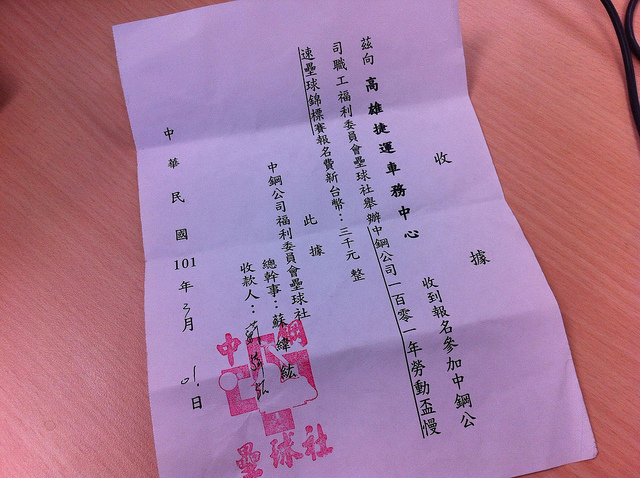 收據
茲向 高雄捷運車務中心 收到報名參加中鋼公
司職工福利委員會壘球社舉辦中鋼公司一百零一年勞動盃慢
速壘球錦標賽報名費新台幣：三千元 整
此據
中鋼公司福利委員會壘球社
總幹事：蘇緯紘
收款人：
中鋼
壘球社
中華民國101年3月01日